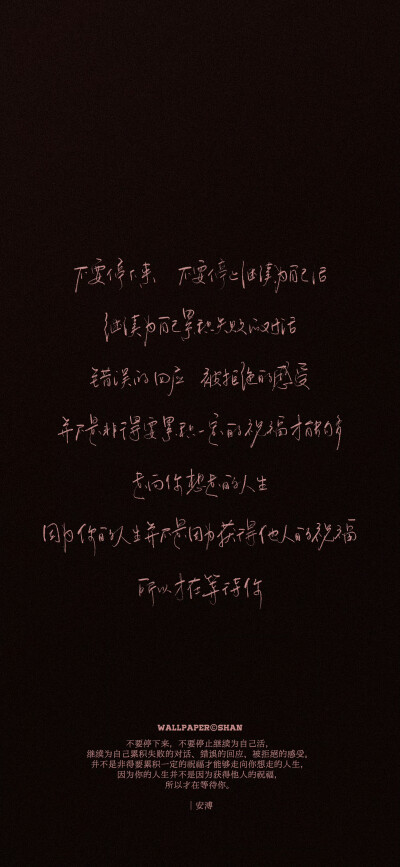 不要停下来 不要停止继续为自己活
继续为自己累积失败的对话
错误的回应 被拒绝的感受
并不是非得要累积一定的祝福才能够
走向你想走的人生
因为你的人生并不是因为获得他人的祝福
所以才在等待你
WALLPAPER©SHAN
不要停下来，不要停止继续为自己活，
继续为自己累积失败的对话、错误的回应、被拒绝的感受，
并不是非得要累积一定的祝福才能够走向你想走的人生，
因为你的人生并不是因为获得他人的祝福，
所以才在等待你。
｜安溥